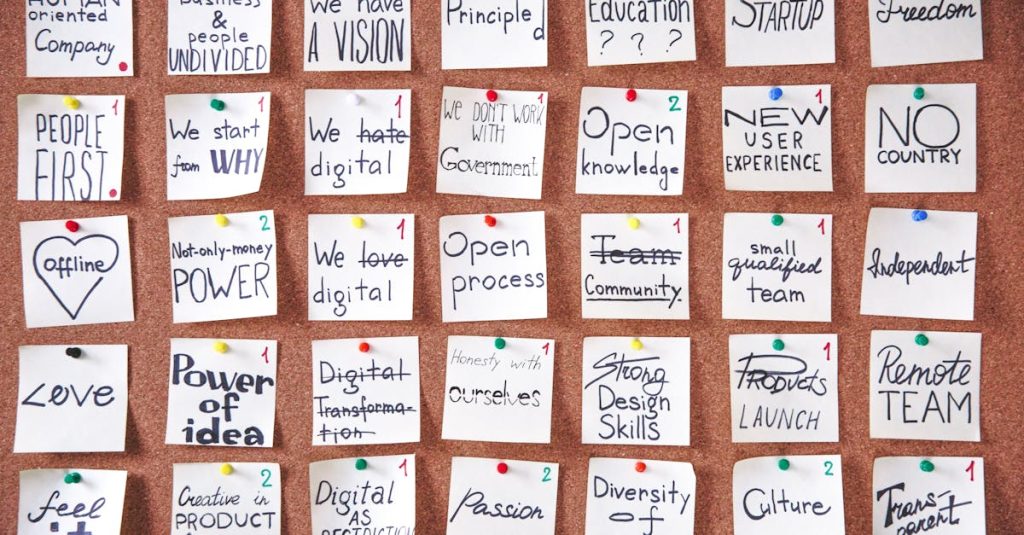 HUMAN
oriented
Company
Business
&
people
UNDIVIDED
We have
A VISION
Principled
Education
? ? ?
STARTUP
Freedom
1
PEOPLE
FIRST
1
We start
from WHY
1
We hate
digital
1
We DON'T WORK
WITH
Government
2
Open
knowledge
1
NEW
USER
EXPERIENCE
NO
COUNTRY
offline
2
Not-only-money
POWER
1
We love
digital
Open
process
1
Team
Community
1
small
qualified
team
Independent
Love
1
Power
of
idea
Digital
Transforma-
tion
1
Honesty with
ourselves
Strong
Design
Skills
1
PRODUCTS
LAUNCH
Remote
TEAM
feel
it
2
Creative in
PRODUCT
1
Digital
AS
2
Passion
Diversity
of
2
Culture
1
Trans-
parent